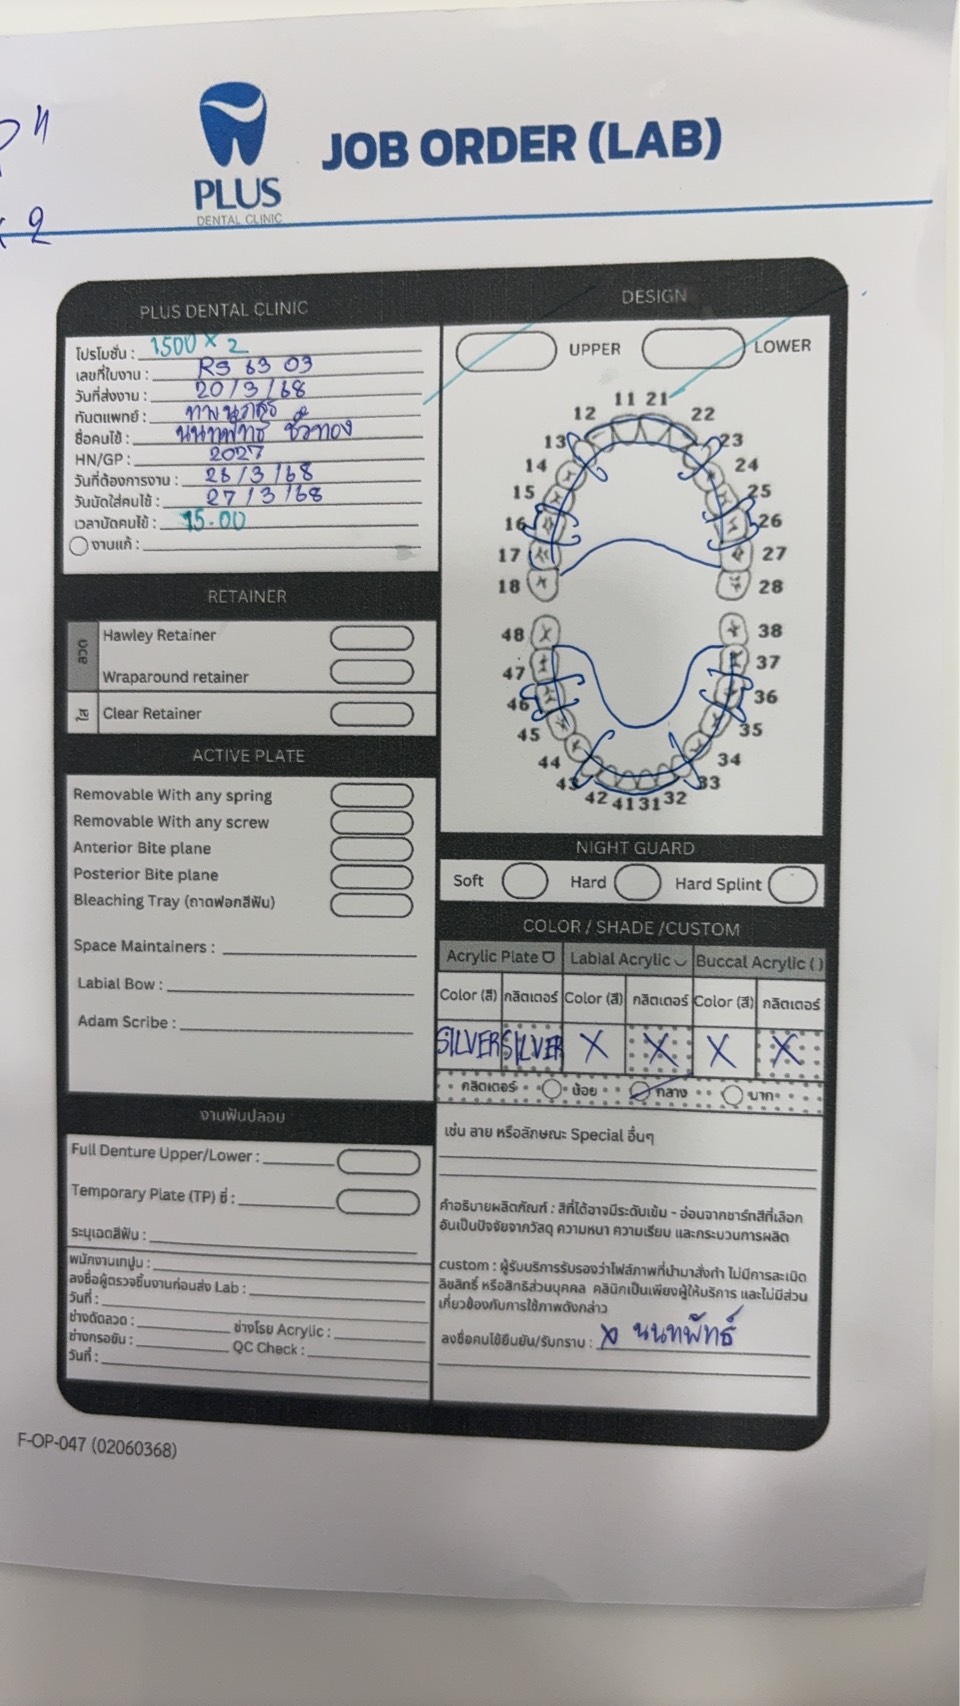 2
PLUS
DENTAL CLINIC
JOB ORDER (LAB)
PLUS DENTAL CLINIC
โปรโมชั่น : 1500 x 2
เลขที่ใบงาน : RS 63 03
วันที่ส่งงาน : 20/3/68
ทันตแพทย์ :
ชื่อคนไข้ : นนทพัทธ์
HN/GP : 2027
วันที่ต้องการงาน : 26/3/68
วันนัดใส่คนไข้ : 27/3/68
เวลานัดคนไข้ : 15.00
งานแก้ :
RETAINER
ลวด
Hawley Retainer
Wraparound retainer
ใส
Clear Retainer
ACTIVE PLATE
Removable With any spring
Removable With any screw
Anterior Bite plane
Posterior Bite plane
Bleaching Tray (ถาดฟอกสีฟัน)
Space Maintainers :
Labial Bow :
Adam Scribe :
งานฟันปลอม
Full Denture Upper/Lower :
Temporary Plate (TP) ซี่ :
ระบุเฉดสีฟัน :
พนักงานเทปูน :
ลงชื่อผู้ตรวจชิ้นงานก่อนส่ง Lab :
วันที่ :
ช่างดัดลวด : ช่างโรย Acrylic :
ช่างกรอขัด : QC Check :
วันที่ :
DESIGN
UPPER LOWER
11 21
12 22
13 23
14 24
15 25
16 26
17 27
18 28
48 38
47 37
46 36
45 35
44 34
43 33
42 41 31 32
NIGHT GUARD
Soft Hard Hard Splint
COLOR / SHADE /CUSTOM
Acrylic Plate Labial Acrylic Buccal Acrylic ( )
Color (สี) กลิตเตอร์ Color (สี) กลิตเตอร์ Color (สี) กลิตเตอร์
SILVER SILVER X X X X
กลิตเตอร์ น้อย กลาง มาก
เช่น ลาย หรือลักษณะ Special อื่นๆ
คำอธิบายผลิตภัณฑ์ : สีที่ได้อาจมีระดับเข้ม - อ่อนจากชาร์ทสีที่เลือก
อันเป็นปัจจัยจากวัสดุ ความหนา ความเรียบ และกระบวนการผลิต
custom : ผู้รับบริการรับรองว่าไฟล์ภาพที่นำมาสั่งทำ ไม่มีการละเมิด
ลิขสิทธิ์ หรือสิทธิส่วนบุคคล คลินิกเป็นเพียงผู้ให้บริการ และไม่มีส่วน
เกี่ยวข้องกับการใช้ภาพดังกล่าว
ลงชื่อคนไข้ยืนยัน/รับทราบ : x นนทพัทธ์
F-OP-047 (02060368)